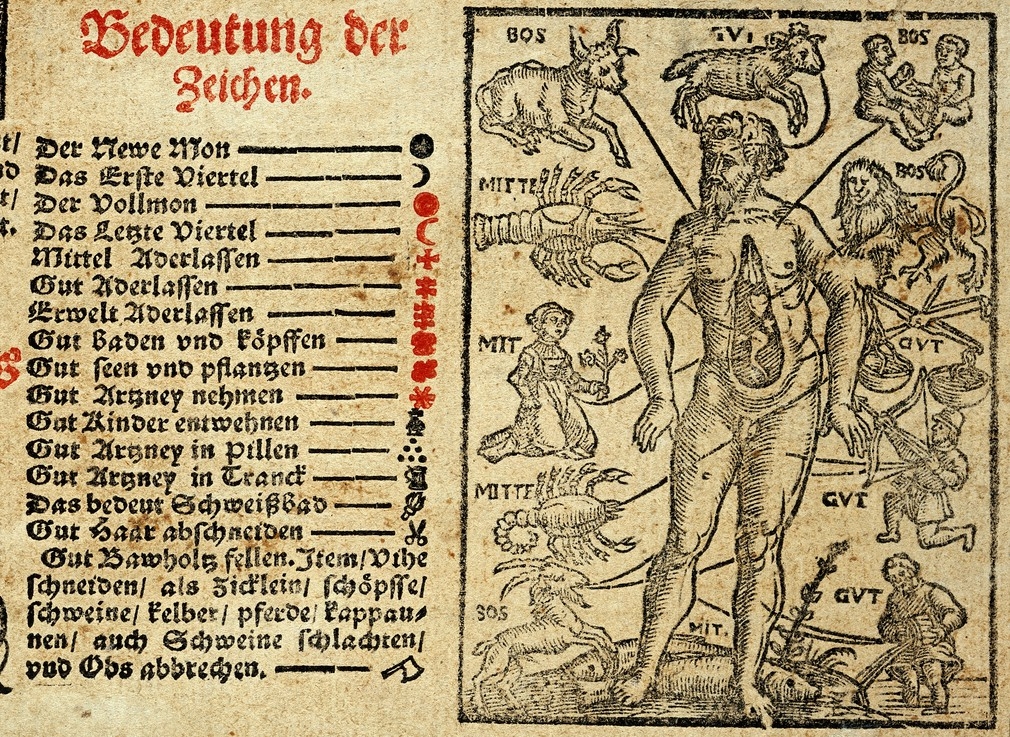 Bedeutung der
Zeichen.
Der Newe Mon
Das Erste Viertel
Der Vollmon
Das Letzte Viertel
Mittel Aderlassen
Gut Aderlassen
Erwelt Aderlassen
Gut baden vnd köpffen
Gut seen vnd pflantzen
Gut Artzney nehmen
Gut Kinder entwehnen
Gut Artzney in Pillen
Gut Artzney in Tranck
Das bedeut Schweißbad
Gut Haar abschneiden
Gut Bawholtz fellen. Item/ Vihe
schneiden/ als Zicklein/ schöpsse/
schweine/ kelber/ pferde/ kappau-
nen/ auch Schweine schlachten/
vnd Obs abbrechen.
BOS
GVT
BOS
MITTE
BOS
MIT
GVT
MITTE
GVT
BOS
MIT.
GVT